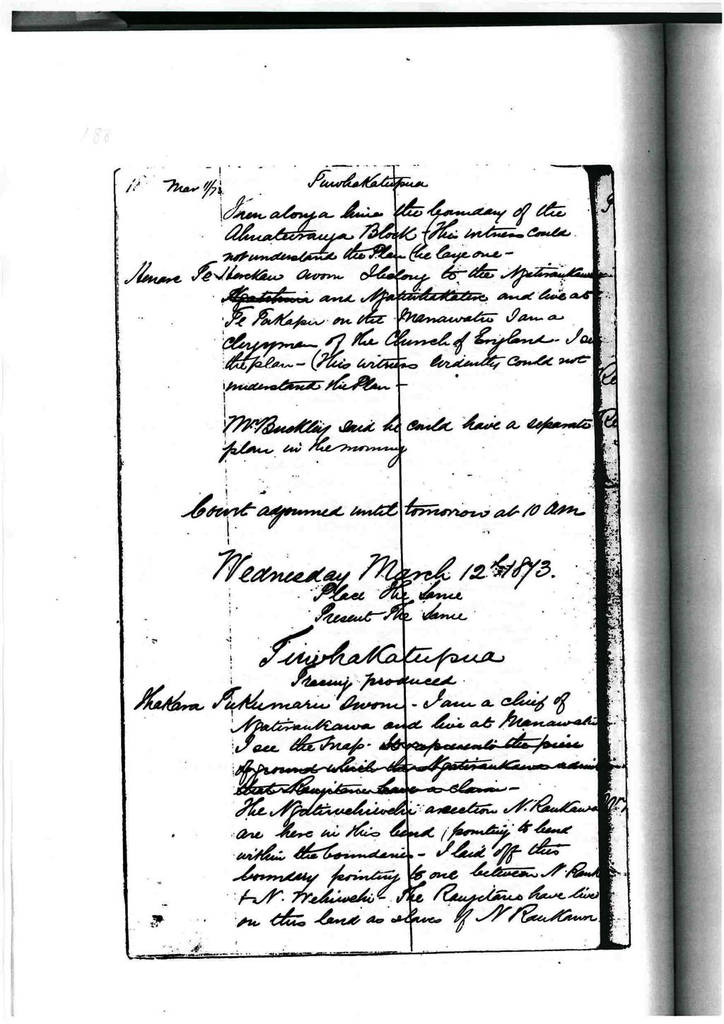 188
Mar 11/73 Tiwhakatupua
Then along a line the boundary of the
Ahuaturanga Block (This witness could
not understand the Plan (the large one -
Henare Te Herekau sworn I belong to the Ngatiraukawa
and Ngatiwhakatere and live at
Te on the Manawatu I am a
clergyman of the Church of England - I see
the plan - (This witness evidently could not
understand the Plan -
Mr Buckley said he could have a separate
plan in the morning
Court adjourned until tomorrow at 10 am
Wednesday March 12th 1873.
Place The same
Present The same
Tiwhakatupua
Tracing produced
Ihakara Tukumaru sworn - I am a chief of
Ngatiraukawa and live at Manawatu
I see the map - It represents the piece
of ground which the Ngatiraukawa admit
that Rangitane have a claim -
The Ngatiwehiwehi a section N. Raukawa
are here in this bend (pointing to bend
within the boundaries - I laid off this
boundary pointing to one between N Rauk
& N. Wehiwehi - The Rangitane have lived
on this land as slaves of N Raukawa